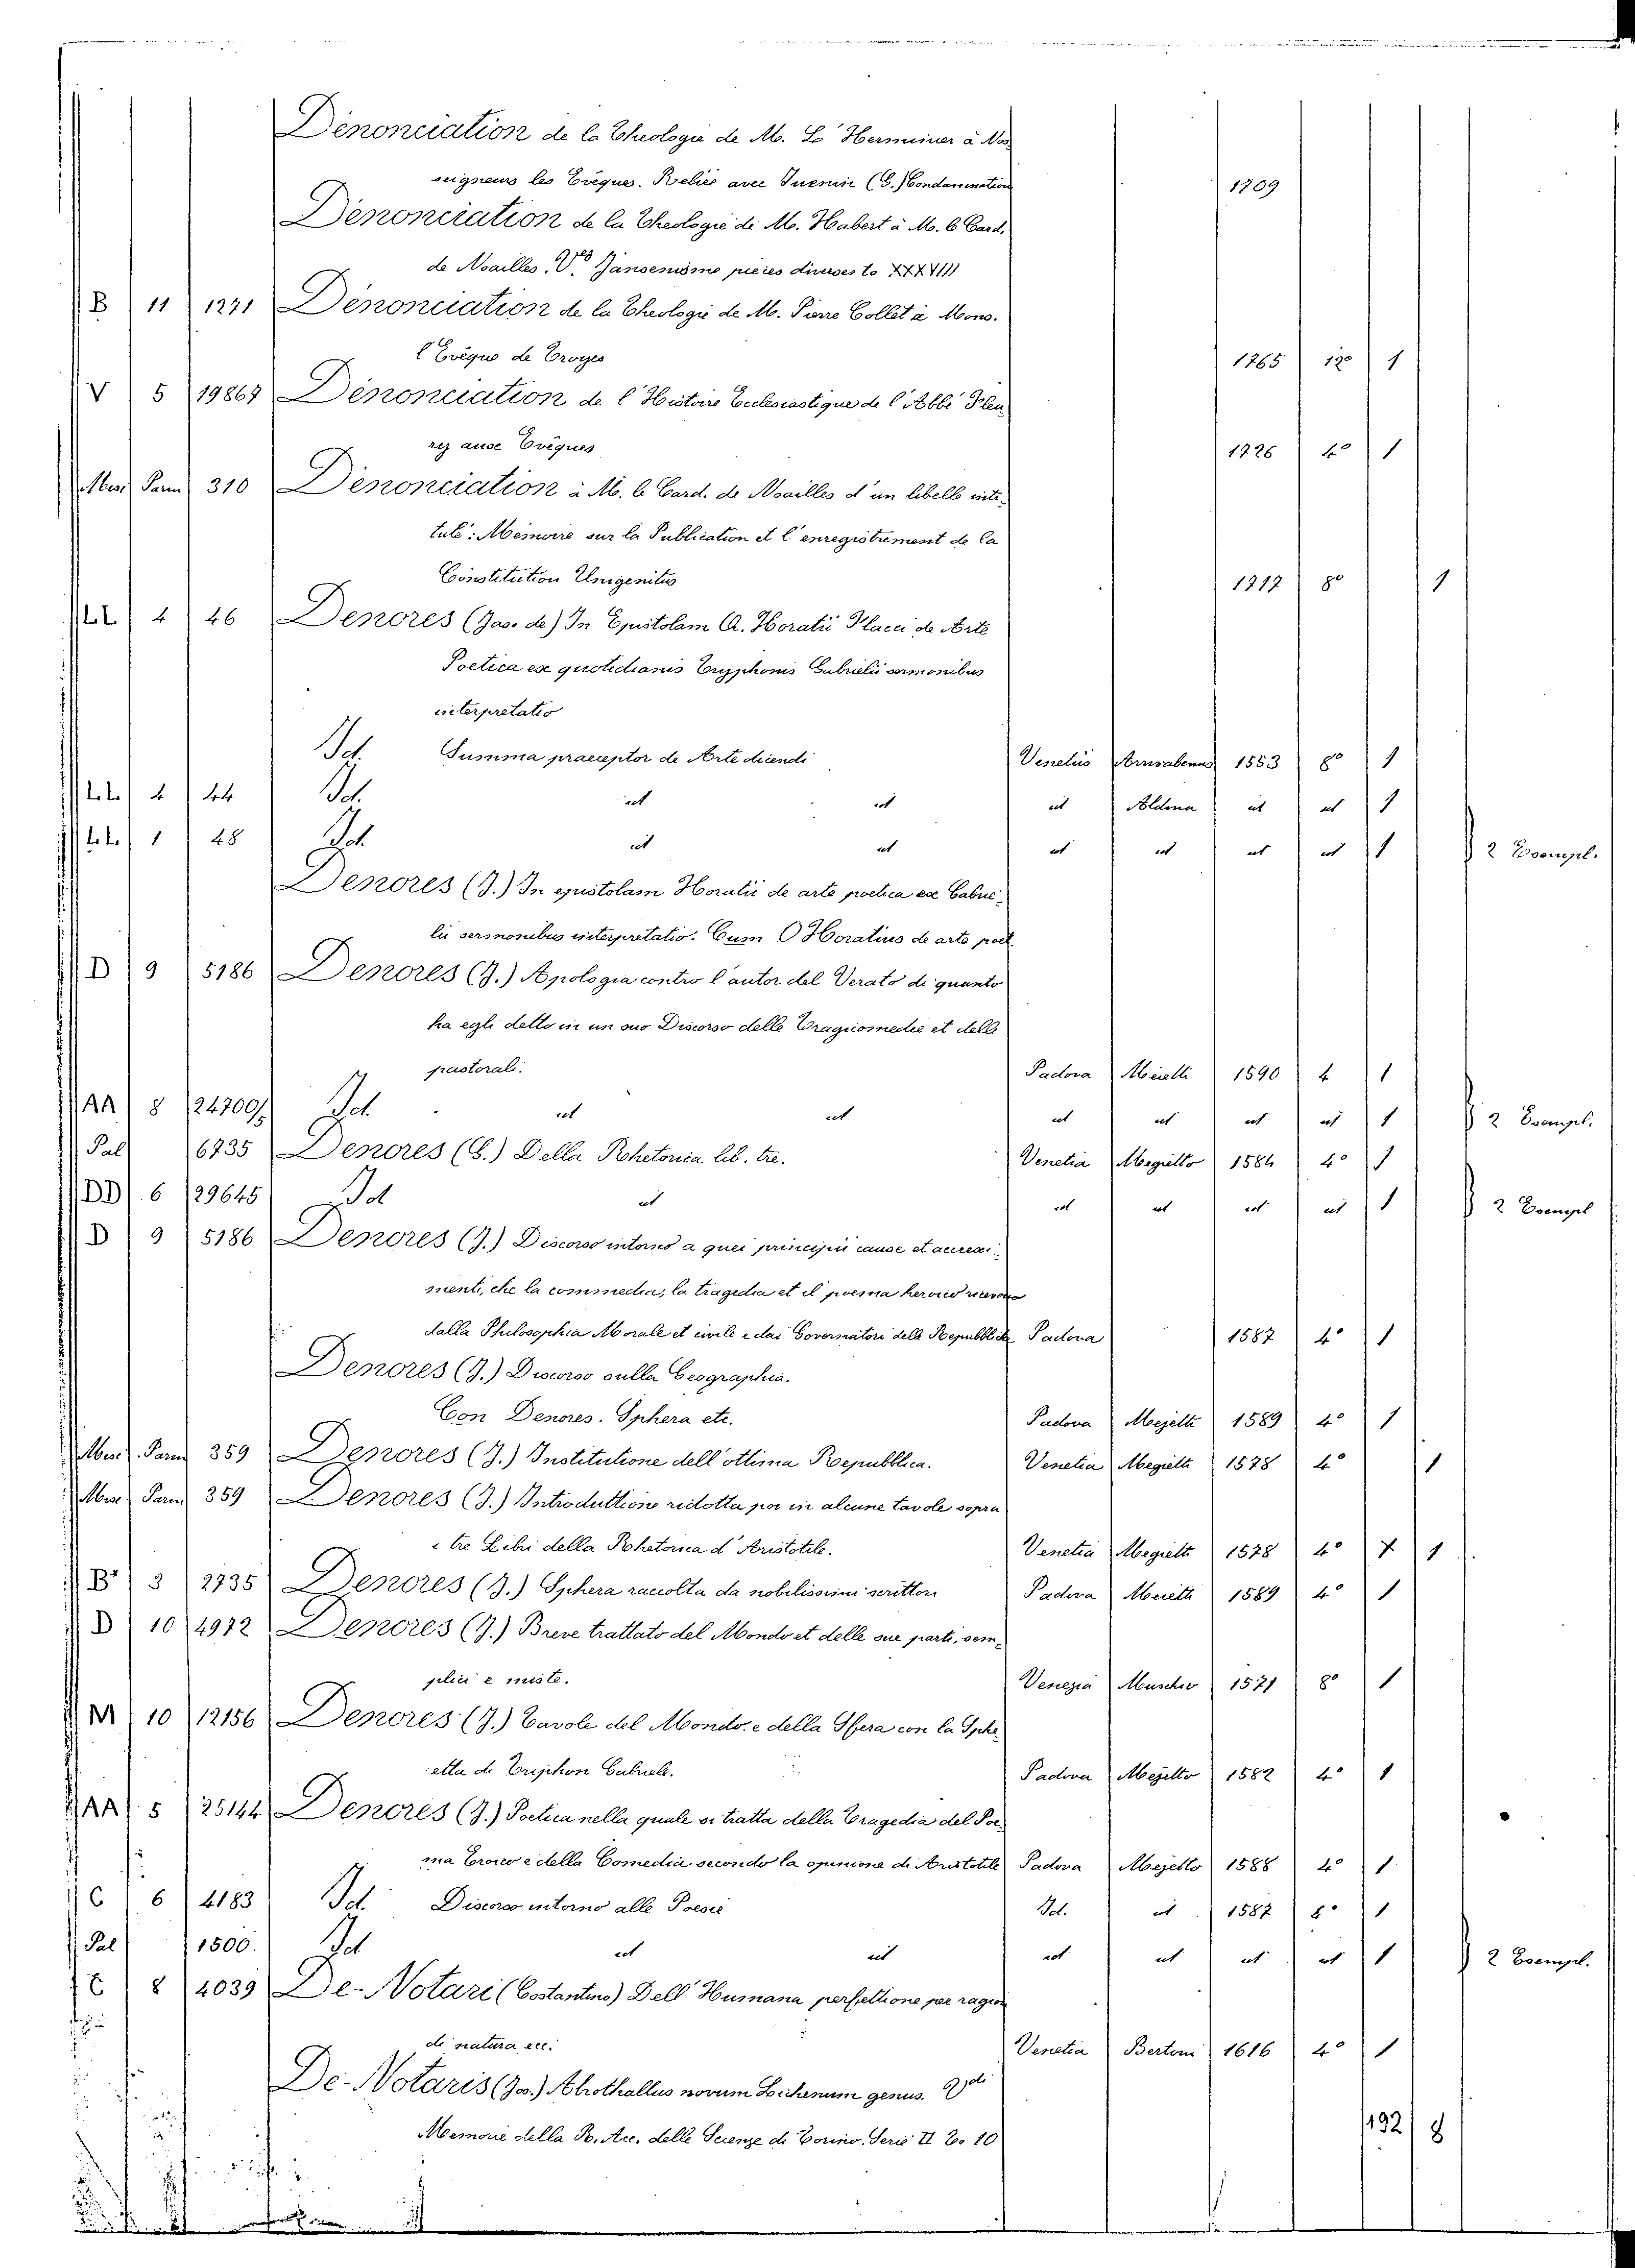 Dénonciation de la Theologie de M. L' Herminier à Nos
seigneurs les Evêques. Reliée avec Juenin (G.) Condamnation 1709
Dénonciation de la Theologie de M. Habert à M. le Card.
de Noailles. V.es Jansenisme pieces diverses to XXXVIII
B 11 1271 Dénonciation de la Theologie de M. Pierre Collet à Mons.
l'Evêque de Troyes 1765 12º 1
V 5 19867 Dénonciation de l'Histoire Ecclesiastique de l'Abbé Fleu
ry aux Evêques 1726 4º 1
Misc. Parm 310 Dénonciation à M. le Card. de Noailles d'un libelle inti-
tulé: Mémoire sur la Publication et l'enregistrement de la
Constitution Unigenitus 1717 8º 1
LL 4 46 Denores (Jas. de) In Epistolam Q. Horatii Flacci de Arte
Poetica ex quotidianis Tryphonis Gabrielii sermonibus
interpretatio
Id. Summa praeceptor de Arte dicendi Venetiis Arrivabenus 1553 8º 1
LL 4 44 Id. ut ut ut Aldina ut ut 1
LL 1 48 Id. ut ut ut ut ut ut 1 2 Esempl.
Denores (J.) In epistolam Horatii de arte poetica ex Gabrie-
lii sermonibus interpretatio. Cum O Horatius de arte poet
D 9 5186 Denores (J.) Apologia contro l'autor del Verato di quanto
ha egli detto in un suo Discorso delle Tragicomedie et delle
pastorali. Padova Meietti 1590 4 1
AA 8 24700 Id. ut ut ut ut ut ut 1 2 Esempl.
Pal 6735 Denores (G.) Della Rhetorica lib. tre. Venetia Megietto 1584 4º 1
DD 6 29645 Id ut ut ut ut ut 1 2 Esempl
D 9 5186 Denores (J.) Discorso intorno a quei principii cause et accresci-
menti, che la commedia, la tragedia et il poema heroico ricevono
dalla Philosophia Morale et civile e dai Governatori delle Repubbliche Padova 1587 4º 1
Denores (J.) Discorso sulla Geographia.
Con Denores. Sphera etc. Padova Mejetti 1589 4º 1
Misc. Parm 359 Denores (J.) Institutione dell'ottima Repubblica. Venetia Megietti 1578 4º 1
Misc. Parm 359 Denores (J.) Introduttione ridotta poi in alcune tavole sopra
i tre Libri della Rhetorica d'Aristotile. Venetia Megietti 1578 4º 1
B 3 2735 Denores (J.) Sphera raccolta da nobilissimi scrittori Padova Meietti 1589 4º 1
D 10 4972 Denores (J.) Breve trattato del Mondo et delle sue parti, sem-
plici e miste. Venezia Muschio 1571 8º 1
M 10 12156 Denores (J.) Tavole del Mondo e della Sfera con la Sphe-
retta di Triphon Gabriele. Padova Mejetto 1582 4º 1
AA 5 25144 Denores (J.) Poetica nella quale si tratta della Tragedia del Poe-
ma Eroico e della Comedia secondo la opinione di Aristotile Padova Mejetto 1588 4º 1
C 6 4183 Id. Discorso intorno alle Poesie Id. ut 1587 8º 1
Pal 1500 Id ut ut ut ut ut ut 1 2 Esempl.
C 8 4039 De-Notari (Costantino) Dell'Humana perfettione per ragion
di natura ecc. Venetia Bertoni 1616 4º 1
De-Notaris (Jos.) Abrothallus novum Lichenum genus. Vdi
Memorie della R. Acc. delle Scienze di Torino. Serie II To 10
192 8